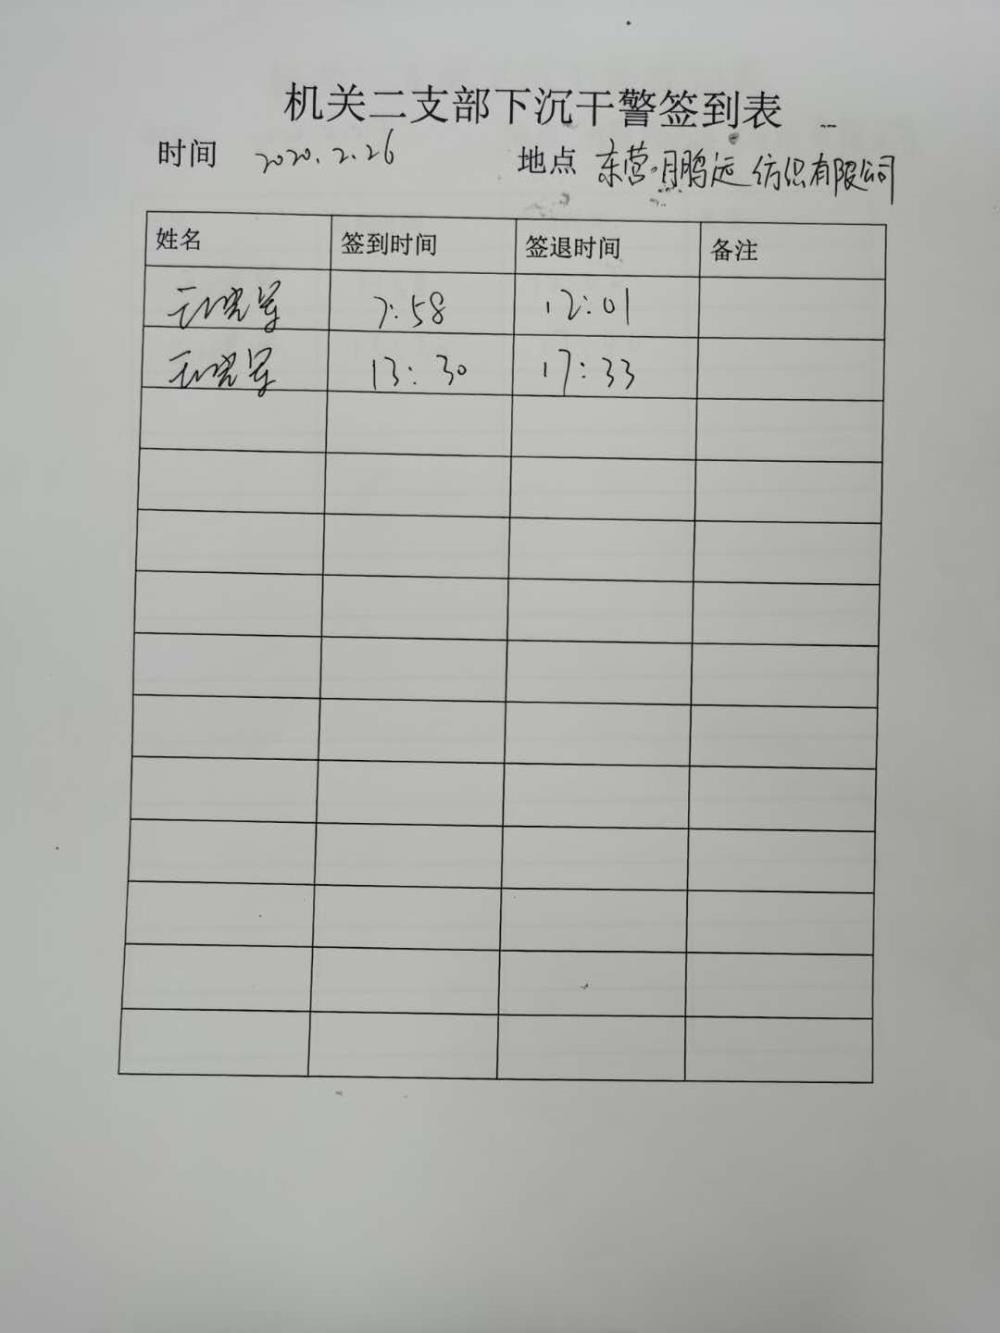 机关二支部下沉干警签到表
时间 2020.2.26 地点 东营月鹏远纺织有限公司
姓名 签到时间 签退时间 备注
7:58 12:01
13:30 17:33